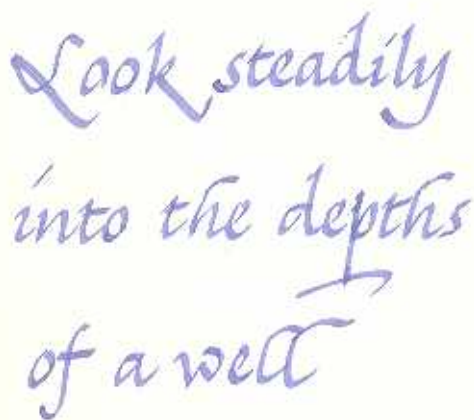 Look steadily
into the depths
of a well